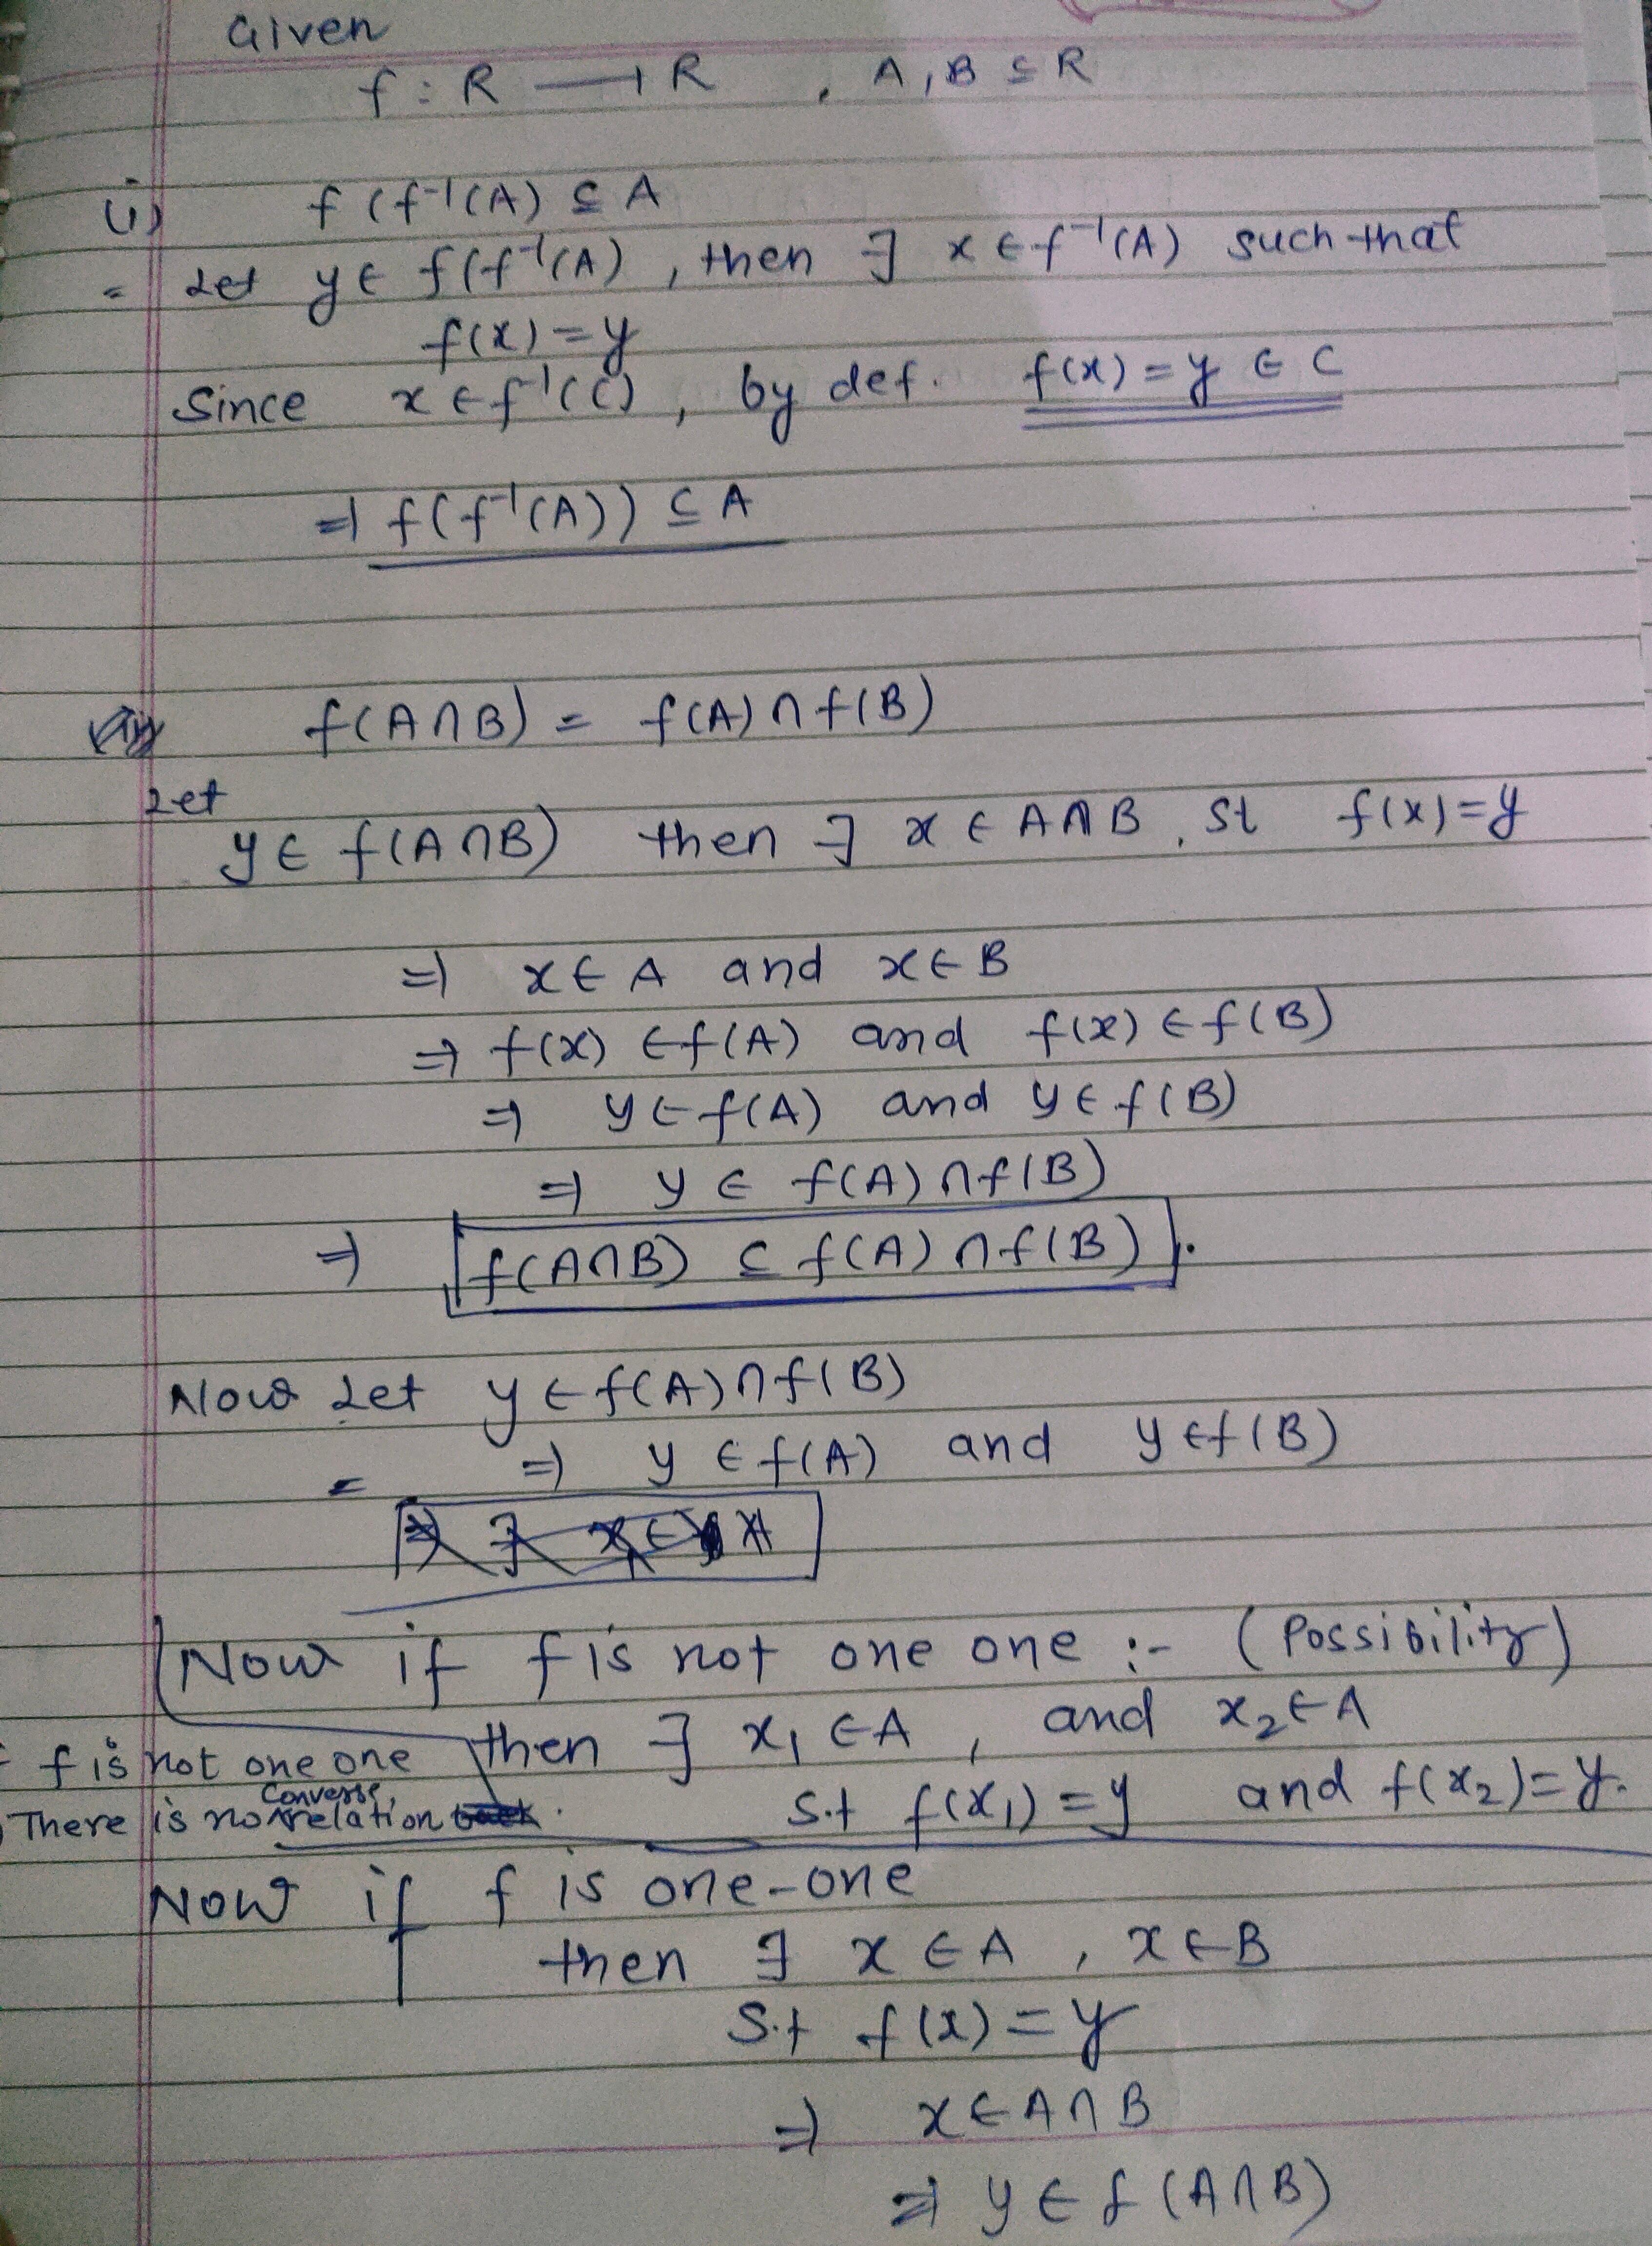 Given
f : R → R , A, B ⊆ R
(i) f(f⁻¹(A) ⊆ A
= Let y ∈ f(f⁻¹(A) , then ∃ x ∈ f⁻¹(A) such that
f(x) = y
Since x ∈ f⁻¹(C) , by def. f(x) = y ∈ C
⇒ f(f⁻¹(A)) ⊆ A
f(A∩B) = f(A)∩f(B)
Let
y ∈ f(A∩B) then ∃ x ∈ A∩B , st f(x)=y
⇒ x ∈ A and x ∈ B
⇒ f(x) ∈ f(A) and f(x) ∈ f(B)
⇒ y ∈ f(A) and y ∈ f(B)
⇒ y ∈ f(A)∩f(B)
⇒ f(A∩B) ⊆ f(A)∩f(B).
Now Let y ∈ f(A)∩f(B)
= ⇒ y ∈ f(A) and y ∈ f(B)
Now if f is not one one :- (Possibility)
then ∃ x₁ ∈ A , and x₂ ∈ A
S.t f(x₁) = y and f(x₂) = y.
f is not one one
There is no Converse relation .
Now if f is one-one
then ∃ x ∈ A , x ∈ B
S.t f(x) = y
⇒ x ∈ A∩B
⇒ y ∈ f(A∩B)